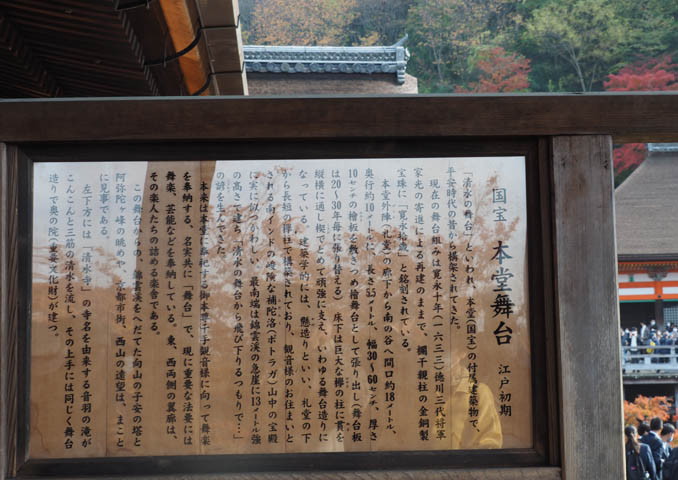 国宝 本堂舞台 江戸初期
「清水の舞台」といわれ、本堂(国宝)の付属建築物で、
平安時代の昔から構架されてきた。
現在の舞台組みは寛永十年(一六三三)徳川三代将軍
家光の寄進による再建のままで、欄干親柱の金銅製
宝珠に「寛永拾歳」と銘記されている。
本堂外陣(礼堂)の廊下から南の谷へ間口約18メートル、
奥行約10メートルに、長さ5.5メートル、幅30〜60センチ、厚さ
10センチの檜板を敷きつめ檜舞台として張り出し(舞台板
は20〜30年毎に張り替える)床下は巨大な欅の柱に貫を
縦横に通し楔でとめて頑強に支え、いわゆる舞台造りに
なっている。建築学的には、懸造りといい、礼堂の下
から長短の欅柱で構架されており、観音様のお住まいと
される南インドの峻険な補陀洛(ポトラガ)山中の宝殿
に実に似つかわしい。最南端は錦雲渓の急崖に13メートル強
の高さで建ち「清水の舞台から飛び下りるつもりで…」
の諺を生んできた。
本来は本堂に奉祀する御本尊千手観音様に向って舞楽
を奉納する、名実共に「舞台」で、現に重要な法要には
舞楽、芸能などを奉納している。東、西両側の翼廊は、
その楽人たちの詰める楽舎である。
この舞台からの、錦雲渓をへだてた向山の子安の塔と
阿弥陀ヶ峰の眺めや、京都市街、西山の遠望は、まこと
に見事である。
左下方には「清水寺」の寺名を由来する音羽の滝が
こんこんと三筋の清水を流し、その上手には同じく舞台
造りで奥の院(重要文化財)が建つ。